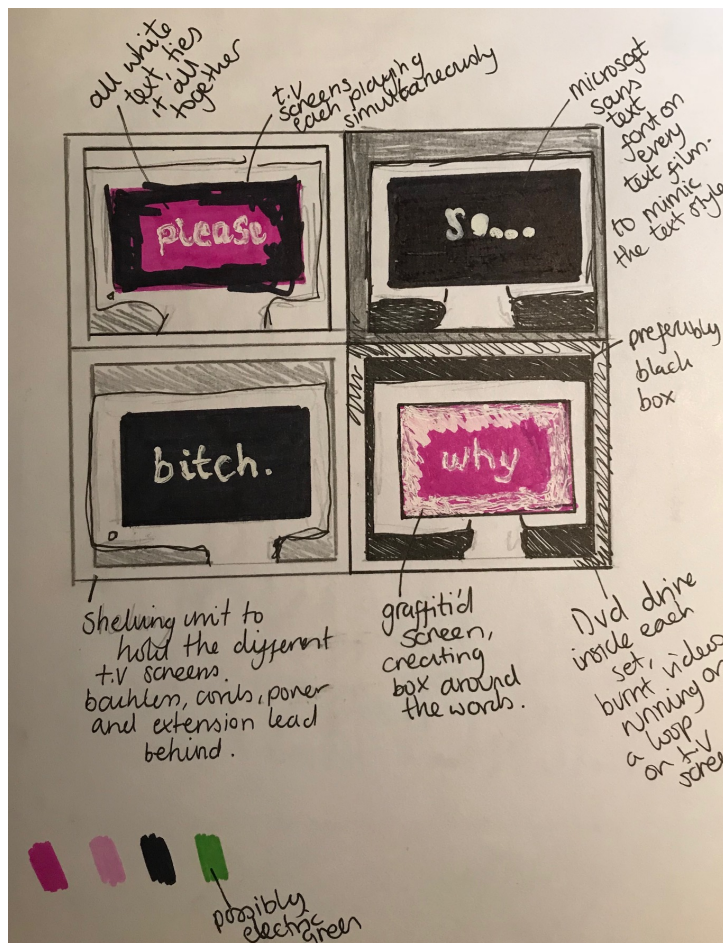 all white
text, ties
it all
together
t.v
screens
each playing
simultaneously
microsoft
sans
text
font on
every
text film.
to mimic
the text style
please
So....
preferibly
black
box
bitch.
why
Shelving unit to
hold the different
t.v screens.
backless, cords, power
and extension lead
behind.
graffiti'd
screen,
creating
box around
the words.
Dvd drive
inside each
set,
burnt videos
running on
a loop
on t.v
screen
possibly
electric
green